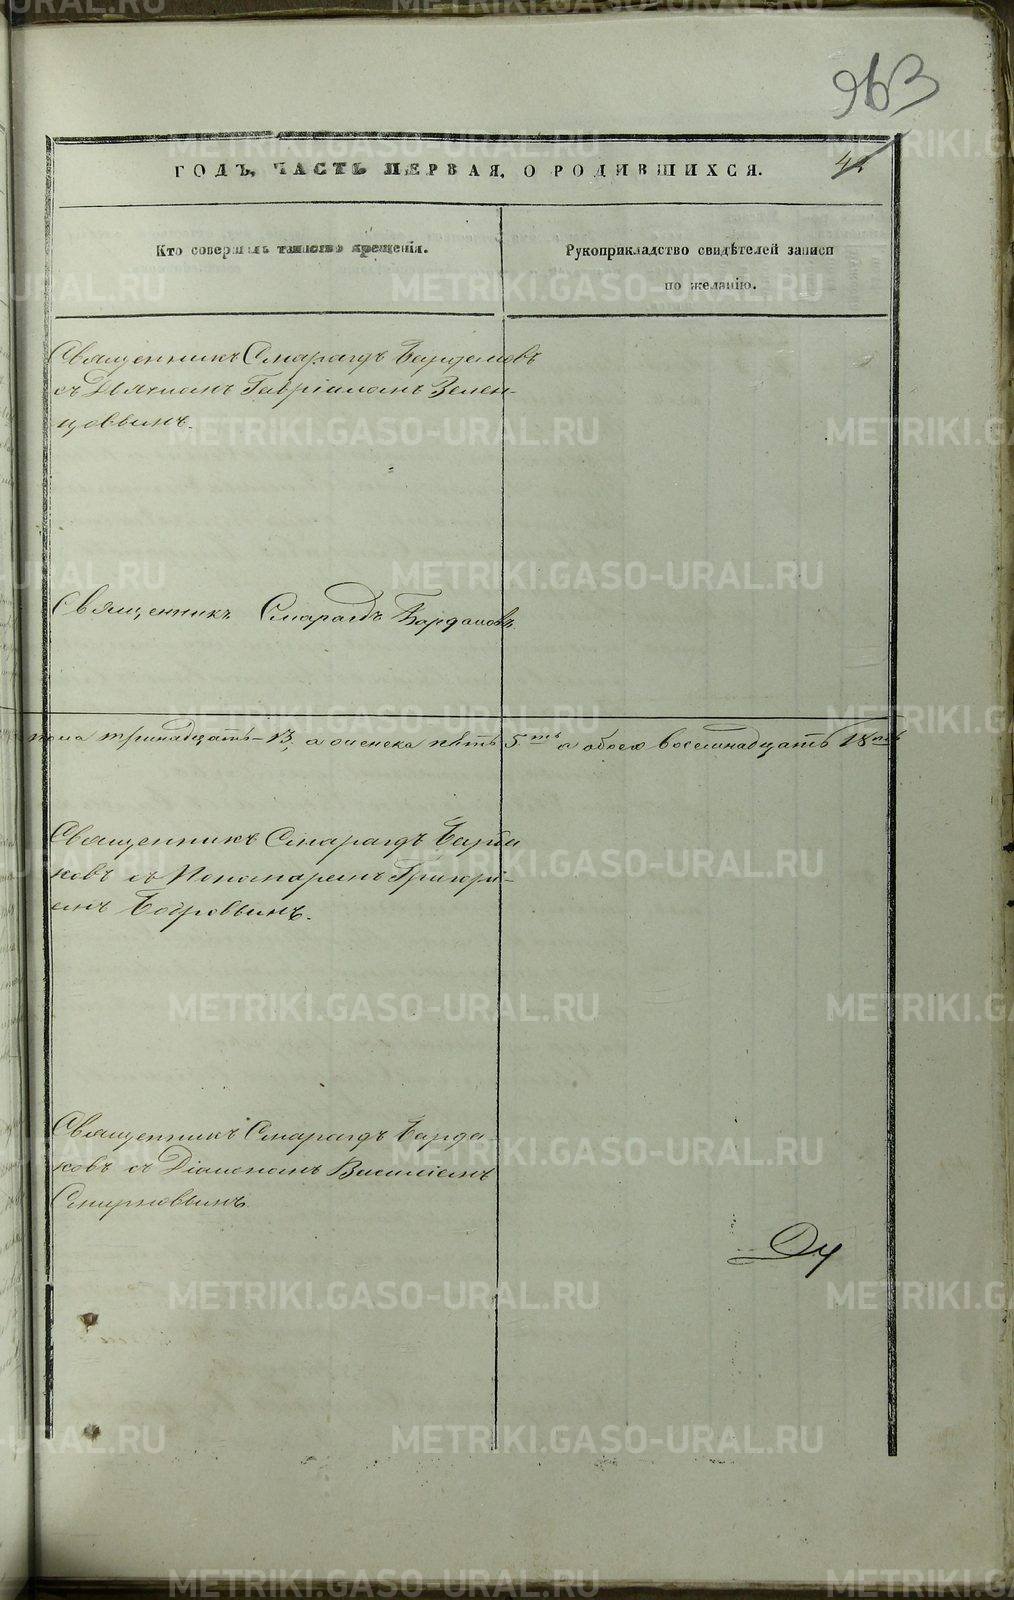 963
ГОДЪ, ЧАСТЬ ПЕРВАЯ, О РОДИВШИХСЯ.
Кто совершалъ таинство крещенія.
Рукоприкладство свидѣтелей записи
по желанію.
Священникъ Смарагдъ
съ Гавріиломъ Зелен-
цовымъ.
Священникъ Смарагдъ
пола тринадцать - 13, а женска пять 5ть а обоего восемнадцать 18ть
Священникъ Смарагдъ Барда
ковъ съ Пономаремъ Григорі-
емъ
Священникъ Смарагдъ Барда-
ковъ съ Діакономъ Василіемъ
Смирновымъ.
METRIKI.GASO-URAL.RU